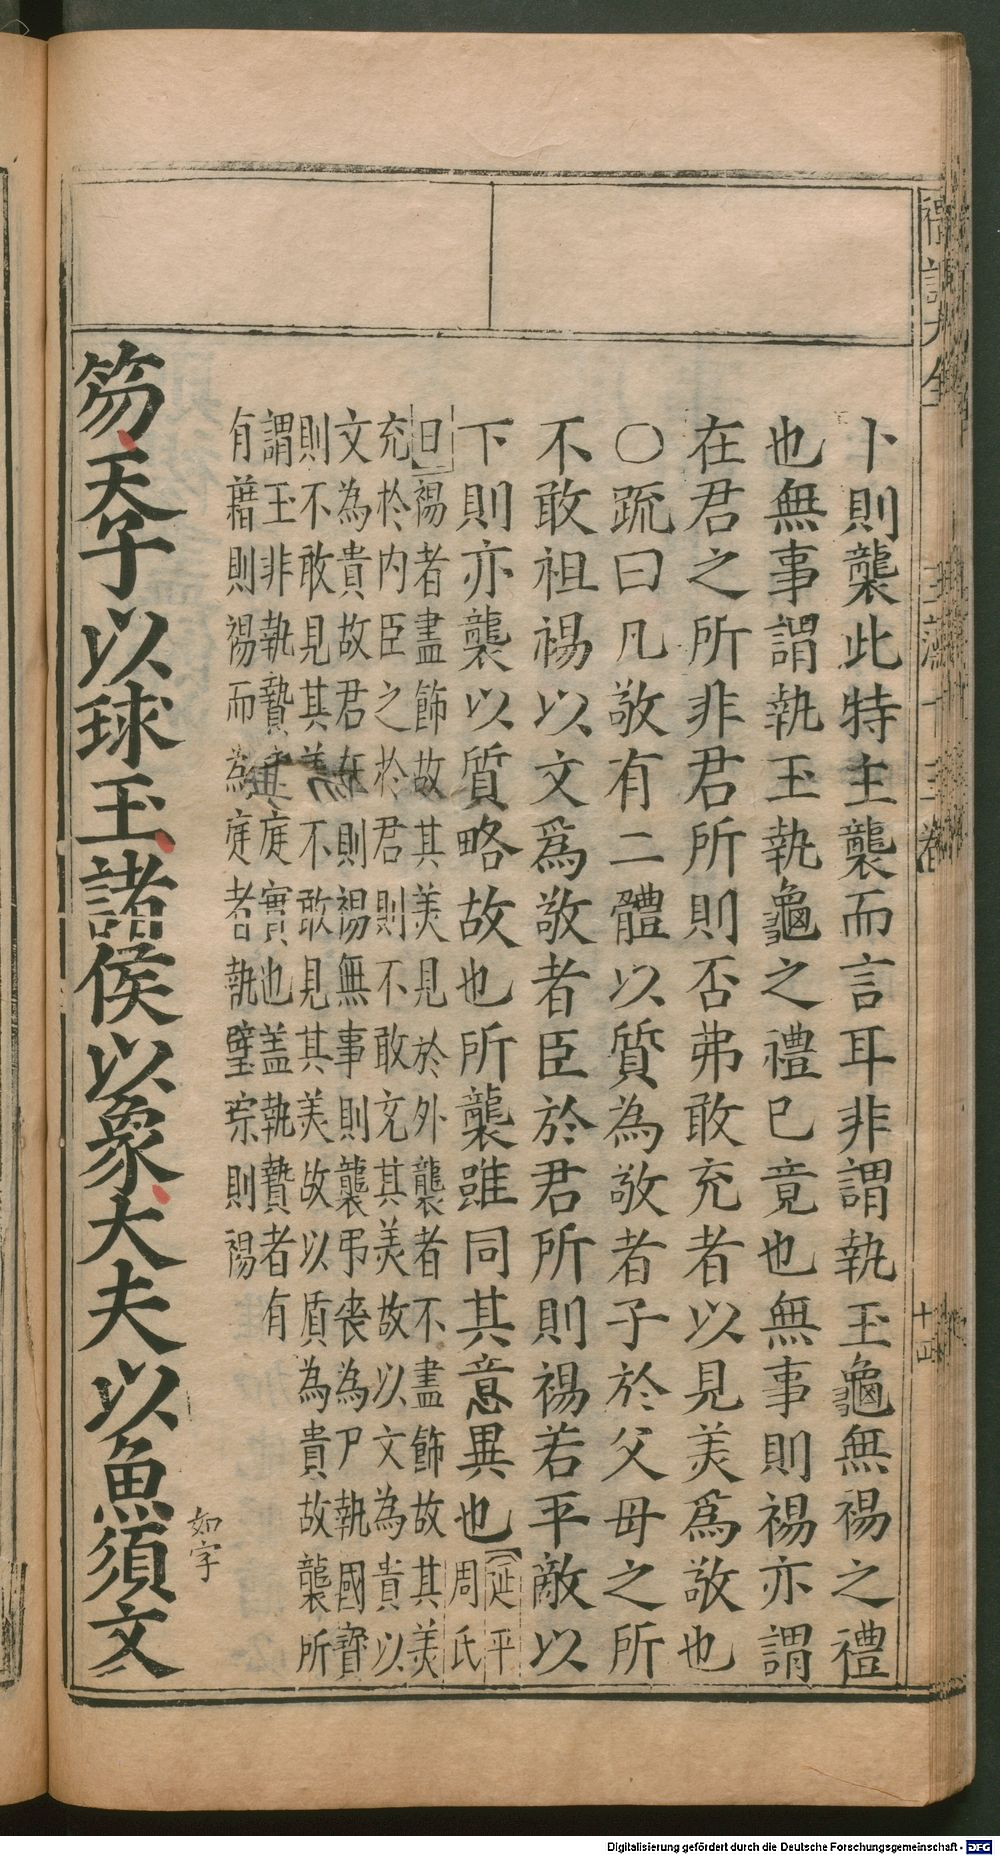 卜則襲此特主襲而言耳非謂執玉龜無裼之禮
也無事謂執玉執龜之禮已竟也無事則裼亦謂
在君之所非君所則否弗敢充者以見美爲敬也
○疏曰凡敬有二體以質為敬者子於父母之所
不敢袒裼以文爲敬者臣於君所則裼若平敵以
下則亦襲以質略故也所襲雖同其意異也 延平
周氏
曰裼者盡飾故其美見於外襲者不盡飾故其美
充於内臣之於君則不敢充其美故以文為貴以
文為貴故君在則裼無事則襲弔喪為尸執國寳
則不敢見其美不敢見其美故以質為貴故襲所
謂玉非執贄庭實也盖執贄者有
有藉則裼而為庭者執璧琮則裼
笏天子以球玉諸侯以象大夫以魚須文
如字
禮記大全
玉藻十三卷
Digitalisierung gefördert durch die Deutsche Forschungsgemeinschaft - DFG